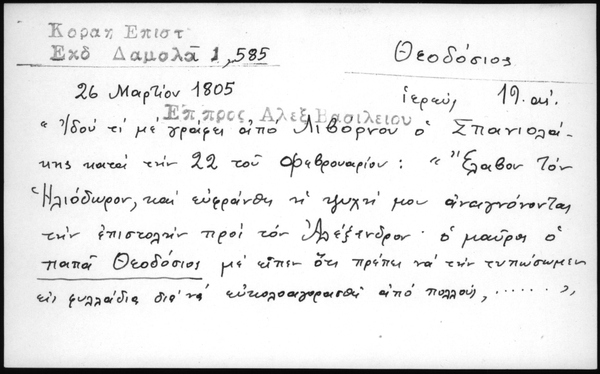 Κοραη Επιστ
Εκδ Δαμαλᾶ 1, 585
Θεοδόσιος
26 Μαρτίου 1805
ἱερεύς, 19. αἰ.
Επ.προς Αλεξ Βασιλειου
" Ἰδού τί μέ γράφει ἀπό Λιβόρνου ὁ Σπανιολά-
κης κατά τήν 22 τοῦ Φεβρουαρίου : " Ἔλαβον τόν
Ἡλιόδωρον, καί εὐφράνθη ἡ ψυχή μου ἀναγνόνοντας
τήν ἐπιστολήν πρός τόν Ἀλέξανδρον· ὁ μαῦρος ὁ
παπᾶ Θεοδόσιος μέ εἶπεν ὅτι πρέπει νά τήν τυπώσωμεν
εἰς φυλλάδια διά νά εὐκολοαγορασθῆ ἀπό πολλούς, ...... "